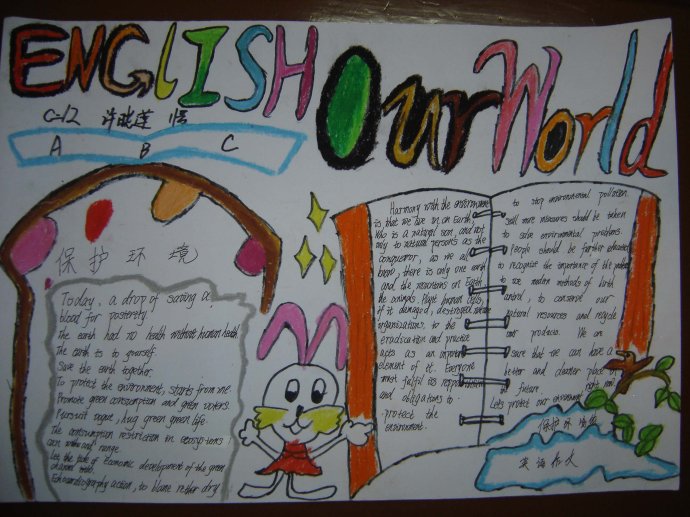 ENGLISH
Our World
C-12 许晓莲
A B C
保护环境
Today, a drop of saving a
blood for posterity!
The earth had no health without human health
The earth is to yourself
Save the earth together.
To protect the environment, starts from me
Promote green consumption and green voters
Pursuit vogue, hug green green life
The consumption restriction in
range
Let the tide of Economic development of the green
channel
action, to blame rether dry
Harmony with the environment
is that we live in on Earth,
Who is a natural son, and not
only to natural persons as the
conqueror, as we all
know, there is only one earth
and the mountains on Earth
the animals Plant human cells,
if it damaged, destroyed
organizations, to the
eradication and practice
acts as an important
element of it. Everyone
must fulfil its responsibilities
and obligations to
protect the
environment.
to stop environmental pollution.
sell more measures should be taken
to solve environmental problems.
People should be further educated
to recognize the importance of the problem
to use modern methods of birth
control, to conserve our
natural resources and recycle
our products. We are
sure that we can have a
better and cleaner place in
the future. right now!
Let's protect our environment
保护环境
英语